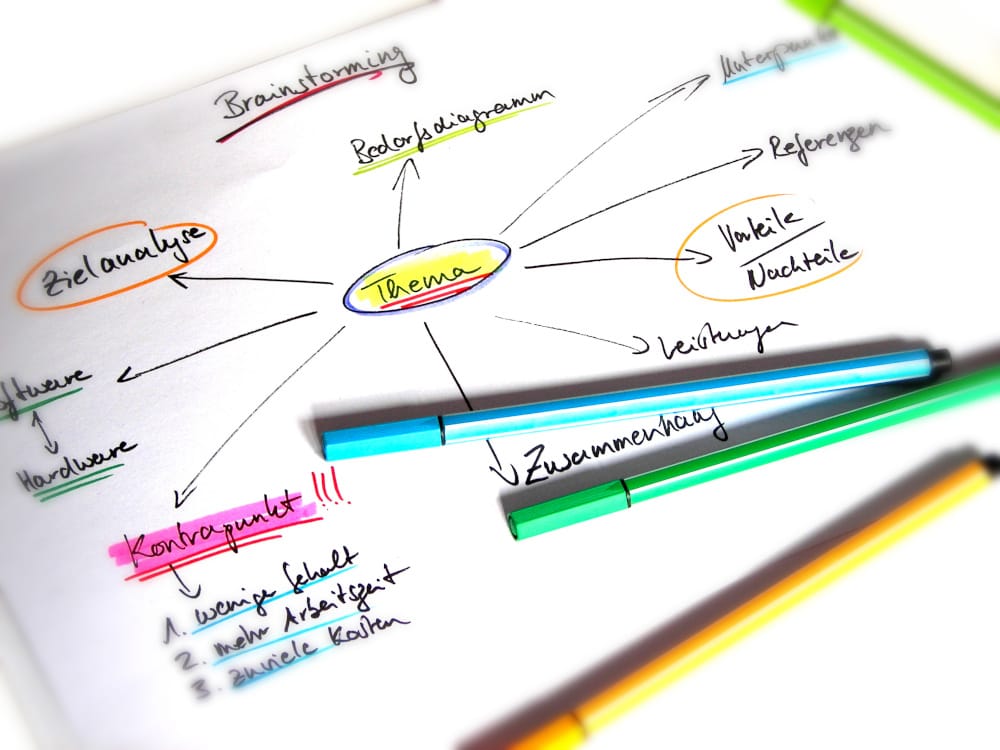 Brainstorming
Bedarfsdiagramm
Unterpunkte
Referenzen
Vorteile
Nachteile
Leistungen
Zusammenhang
Thema
Zielanalyse
Software
Hardware
Kontrapunkt !!!
1. weniger Gehalt
2. mehr Arbeitszeit
3. zuviele Kosten